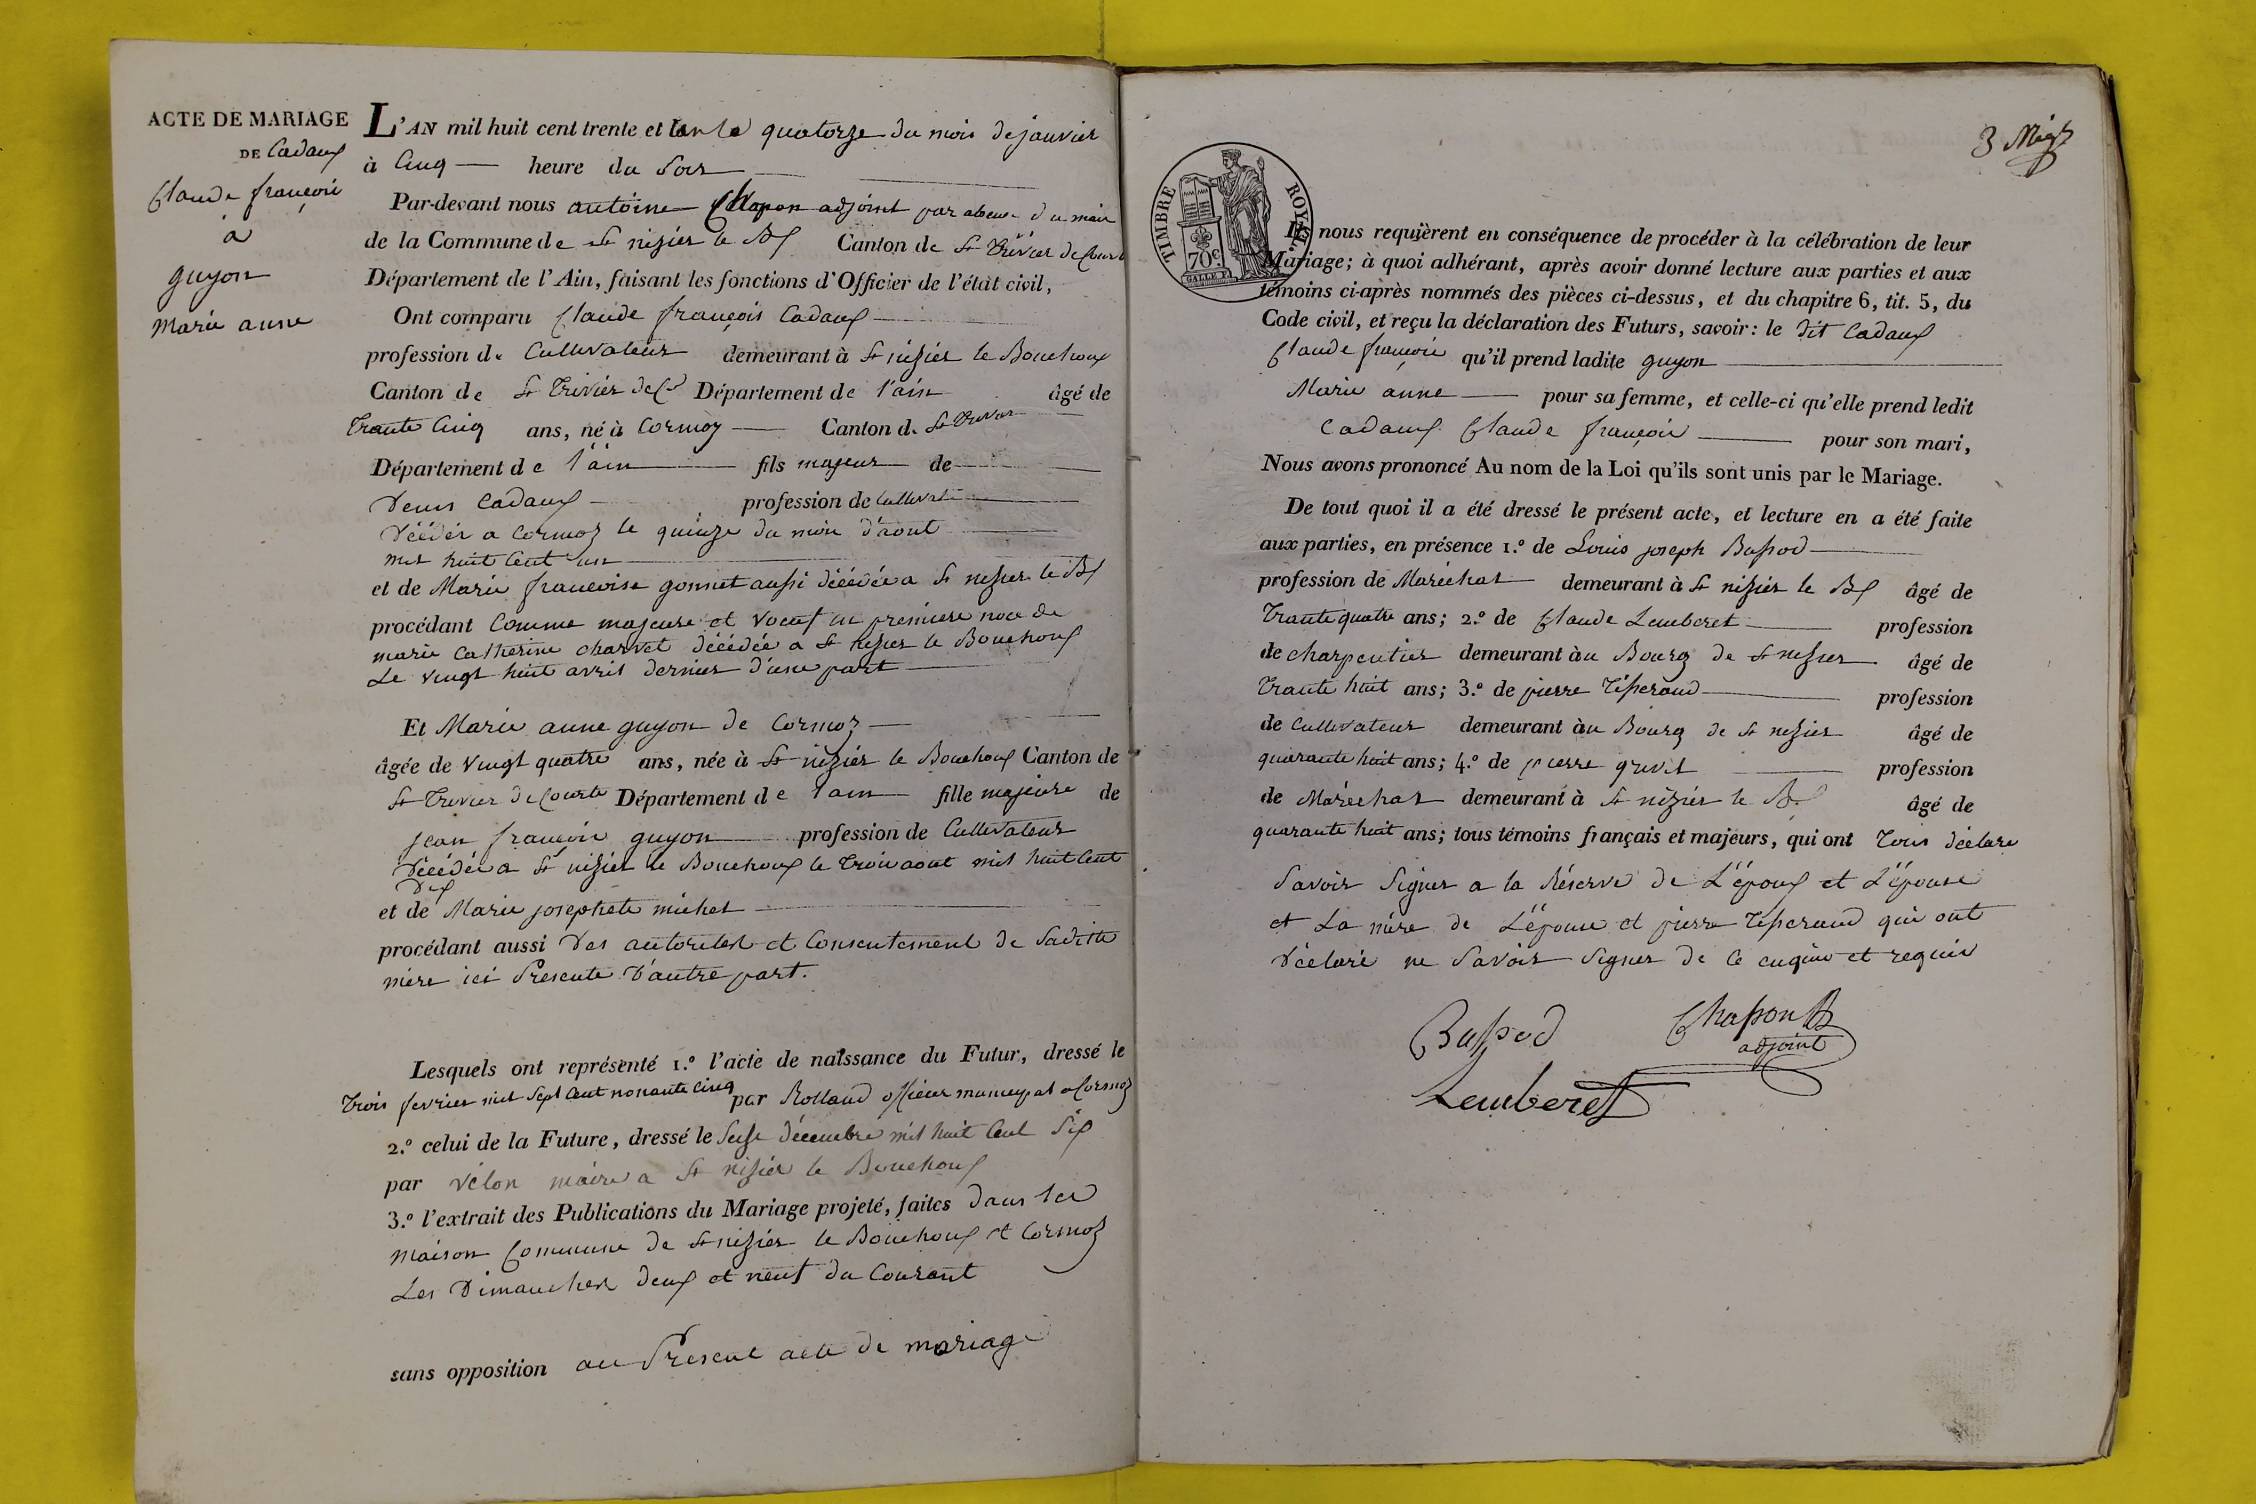 ACTE DE MARIAGE
DE Cadaux
Claude françois
à
guyon
marie anne
L'AN mil huit cent trente et un le quatorze du mois de janvier
à Cinq heure du Soir
Par-devant nous antoine Chapon adjoint par absence du maire
de la Commune de St nizier le Bx Canton de St Trivier de Courte
Département de l'Ain, faisant les fonctions d'Officier de l'état civil,
Ont comparu Claude françois Cadaux
profession de Cultivateur demeurant à St nizier le Bouchoux
Canton de St Trivier de Cs Département de l'ain âgé de
Trante Cinq ans, né à Cormoz Canton de St Trivier
Département de l'ain fils majeur de
Denis Cadaux profession de Cultivat
Décédé a Cormoz le quinze du mois d'aout
mil huit Cent un
et de Marie francoise gonnet aussi décédée a St nizier le Bx
procédant Comme majeure et voeuf en premiere noce de
marie Catherine charvet décédée a St nizier le Bouchoux
Le vingt huit avril dernier d'une part
Et Marie anne guyon de Cormoz
âgée de vingt quatre ans, née à St nizier le Bouchoux Canton de
St Trivier de Courte Département de l'ain fille majeure de
jean françois guyon profession de Cultivateur
Décédé a St nizier le Bouchoux le Trois aout mil huit Cent
Dix
et de Marie josephete michel
procédant aussi Des autorités et Consentement de Sadite
mère ici Presente D'autre part.
Lesquels ont représenté 1.° l'acte de naissance du Futur, dressé le
Trois fevrier mil Sept Cent nonante Cinq par Rolland officier municipal a Cormoz
2.° celui de la Future, dressé le Seise décembre mil huit Cent Six
par vélon maire a St nizier le Bouchoux
3.° l'extrait des Publications du Mariage projeté, faites dans les
maison Commune de St nizier le Bouchoux et Cormoz
Les Dimanches deux et neuf du Courant
sans opposition au Present acte de mariage
3 Mig
TIMBRE ROYAL
70c
Ils nous requièrent en conséquence de procéder à la célébration de leur
Mariage; à quoi adhérant, après avoir donné lecture aux parties et aux
témoins ci-après nommés des pièces ci-dessus, et du chapitre 6, tit. 5, du
Code civil, et reçu la déclaration des Futurs, savoir: le dit Cadaux
Claude françois qu'il prend ladite guyon
Marie anne pour sa femme, et celle-ci qu'elle prend ledit
Cadaux Claude françois pour son mari,
Nous avons prononcé Au nom de la Loi qu'ils sont unis par le Mariage.
De tout quoi il a été dressé le présent acte, et lecture en a été faite
aux parties, en présence 1.° de Louis joseph Bussod
profession de Maréchal demeurant à St nizier le Bx âgé de
Trante quatre ans; 2.° de Claude Lemberet profession
de charpentier demeurant àu Bourg de St nizier âgé de
Trante huit ans; 3.° de pierre Tisserand profession
de Cultivateur demeurant àu Bourg de St nizier âgé de
quarante huit ans; 4.° de pierre grevet profession
de Maréchal demeurant à St nizier le B. âgé de
quarante huit ans; tous témoins français et majeurs, qui ont Tous déclaré
Savoir Signer a la Réserve de L'époux et L'épouse
et La mère de L'épouse et pierre Tisserand qui ont
Déclaré ne Savoir Signer de Ce enquis et requis
Bussod Chapon
adjoint
Lemberet